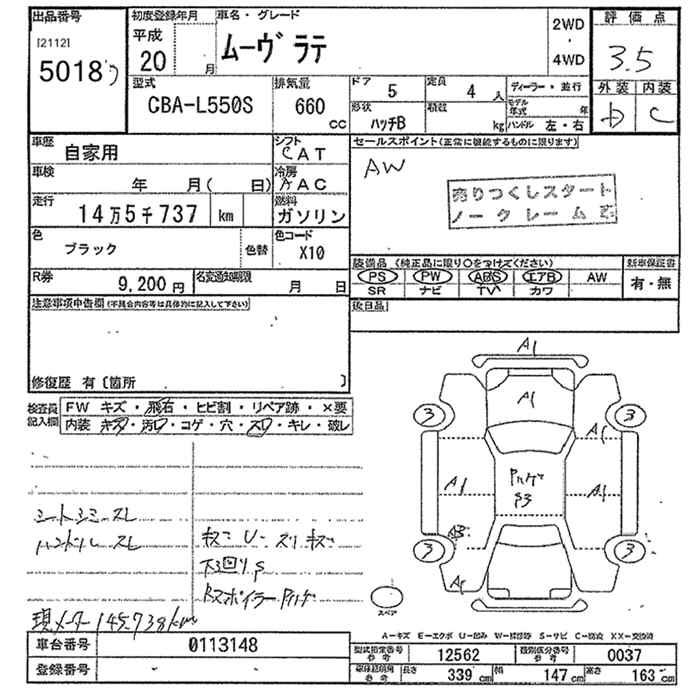 出品番号
[2112]
5018
初度登録年月
平成
20 月
車名・グレード
ムーヴ ラテ
2WD
・
4WD
評価点
3.5
外装 内装
D C
型式
CBA-L550S
排気量
660
CC
ドア
5
定員
4 人
形状
ハッチB
積数
kg
ディーラー・並行
モデル年式 年
ハンドル 左・右
車歴
自家用
シフト
CAT
セールスポイント(正常に機能するものに限ります)
AW
売りつくしスタート
ノークレーム
車検
年 月( 日)
冷房
AAC
走行
14万5千737 km
燃料
ガソリン
色
ブラック
色替
色コード
X10
装備品 (純正品に限り○をつけてください)
PS PW ABS エアB AW
SR ナビ TV カワ
新車保証書
有・無
R券
9,200円
名変通知期限
月 日
後日品
注意事項申告欄(不具合内容等は具体的に記入して下さい)
修復歴 有〔箇所 〕
検査員記入欄
FW キズ・飛石・ヒビ割・リペア跡・×要
内装 キズ・汚レ・コゲ・穴・スレ・キレ・破レ
シートシミスレ
ハンドルスレ
キズ U スリキズ
下回りS
現メーター145,738km
A1
A1
3
3
A1
A1
A1
3
3
スペア
A-キズ E-エクボ U-凹み W-補修跡 S-サビ C-腐食 XX-交換済
車台番号
0113148
登録番号
型式指定番号
参考
12562
類別区分番号
参考
0037
車体総諸元
参考
長さ
339 cm
幅
147 cm
高さ
163 cm